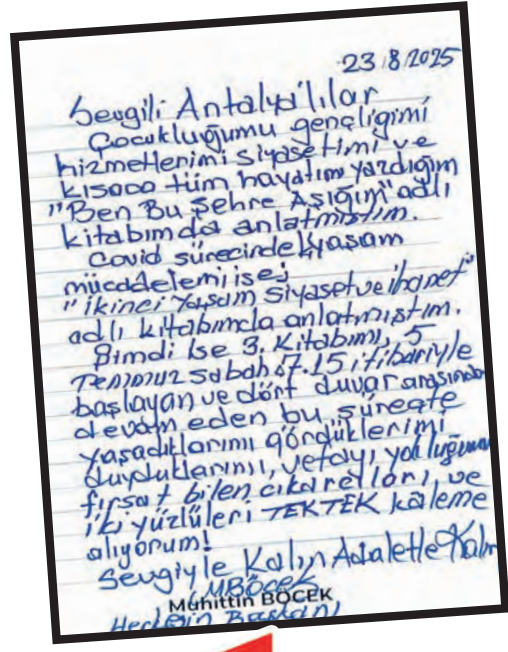 23/8/2025
Sevgili Antalya'lılar
Çocukluğumu gençligimi
hizmetlerimi siyasetimi ve
kısaca tüm hayatımı yazdığım
"Ben Bu Şehre Aşığım" adlı
kitabımda anlatmıştım.
Covid sürecindeki yaşam
mücadelemi ise;
"ikinci Yaşam Siyaset ve ihanet"
adlı kitabımda anlatmıştım.
Şimdi ise 3. Kitabımı, 5
Temmuz sabah 07.15 itibariyle
başlayan ve dört duvar arasında
devam eden bu süreçte
yaşadıklarımı gördüklerimi
duyduklarımı, vefayı yokluğumu
fırsat bilen çıkarcıları, ve
iki yüzlüleri TEKTEK kaleme
alıyorum!
Sevgiyle Kalın Adaletle Kalın
MBöcek
Muhittin BÖCEK
Herkesin Başkanı